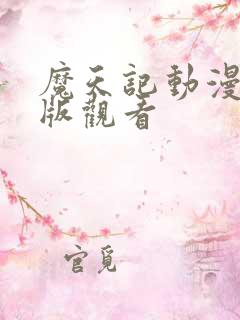 魔天記動漫
版觀看
官覓